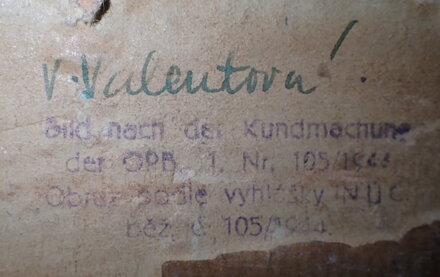 V. Valentová.
Bild nach der Kundmachung
der OPB. 1. Nr. 105/1944
Obraz podle vyhlášky NÚC.
běž. č. 105/1944.